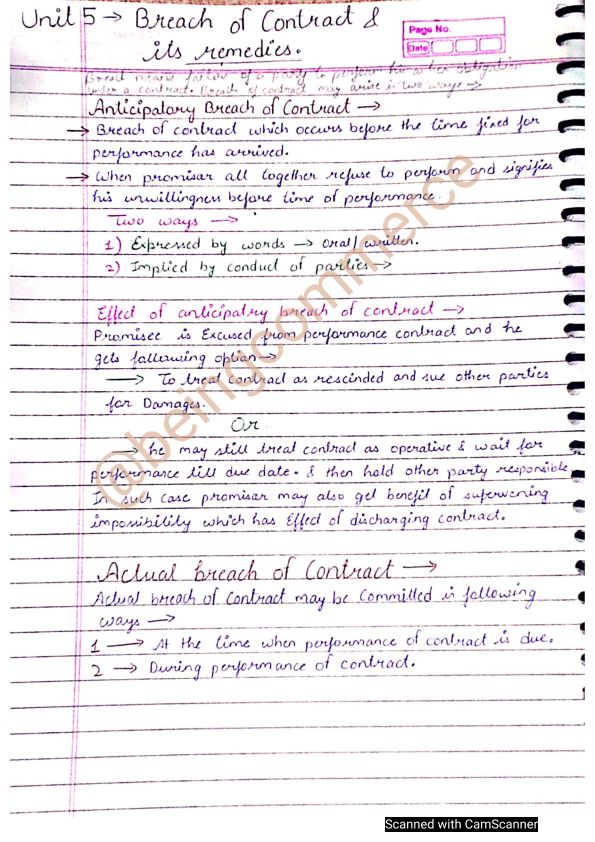 Unit 5 → Breach of Contract &
its remedies.
Page No.
Date
Breach means failure of a party to perform his or her obligation
under a contract. Breach of contract may arise in two ways →
Anticipalory Breach of Contract →
→ Breach of contract which occurs before the time fixed for
performance has arrived.
→ When promisar all together refuse to perform and signifies
his unwillingness before time of performance.
Two ways →
1) Expressed by words → oral/written.
2) Implied by conduct of parties →
Effect of anticipalry breach of contract →
Promisee is Excused from performance contract and he
gets following option →
→ To treat contract as rescinded and sue other parties
for Damages.
Or
→ he may still treat contract as operative & wait for
performance till due date. & then hold other party responsible
In such case promisar may also get benefit of supervening
impossibility which has Effect of discharging contract.
Actual breach of Contract →
Actual breach of Contract may be Committed in following
ways →
1 → At the time when performance of contract is due.
2 → During performance of contract.
@beingcommerce
Scanned with CamScanner